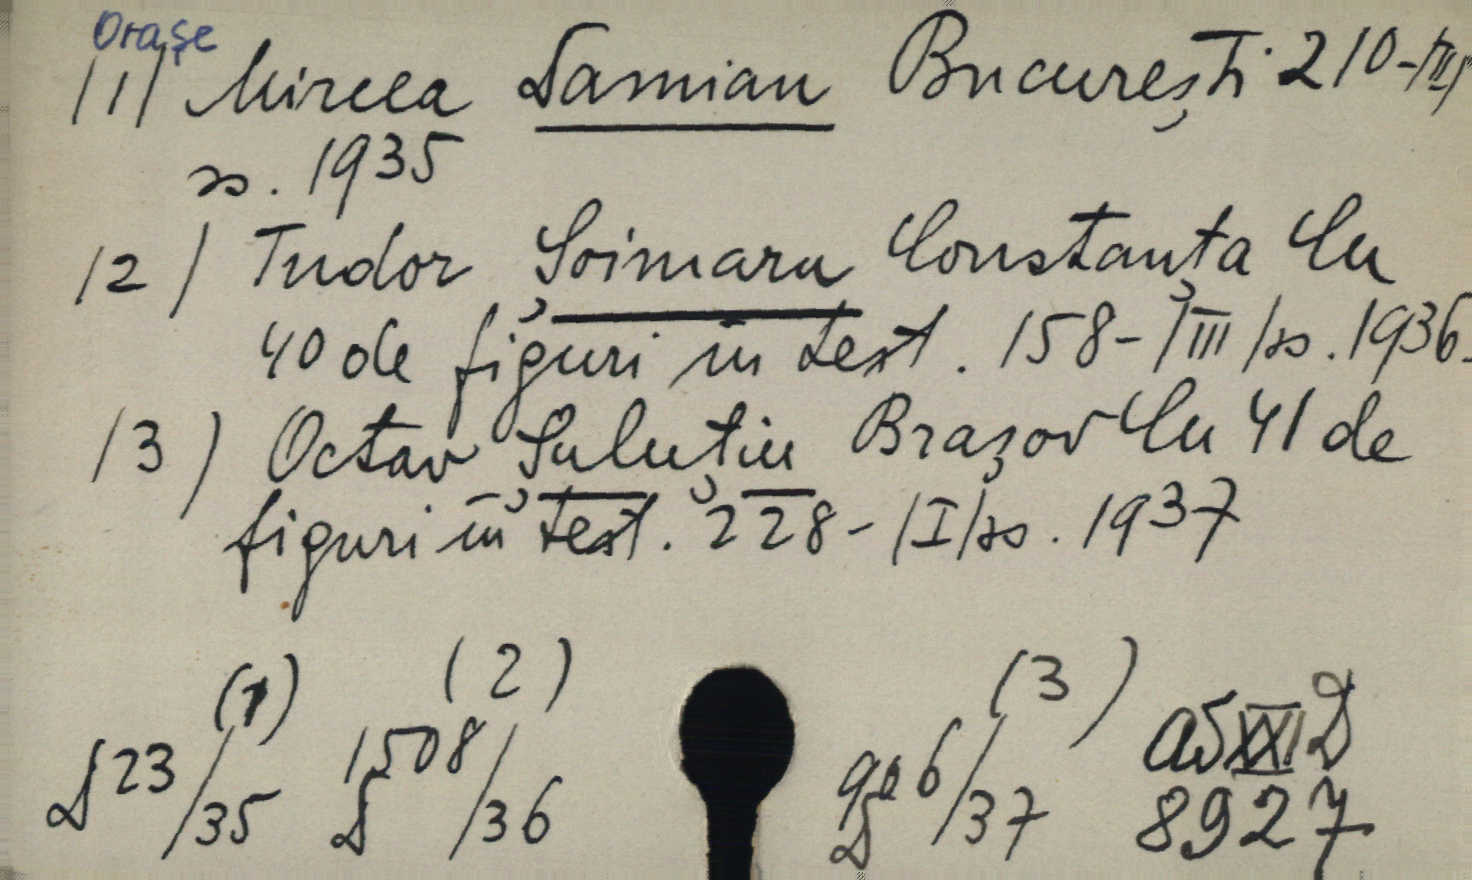 Orașe
/1/ Mircea Damian București 210-/III/
ss. 1935
/2/ Tudor Șoimaru Constanța Cu
40 de figuri în text. 158-/III/ss. 1936.
/3) Octav Șuluțiu Brașov Cu 41 de
figuri în text. 228-/I/ss. 1937
(1) (2) (3)
D 23/35 D 1508/36 D 906/37 a5 XXI D
8927